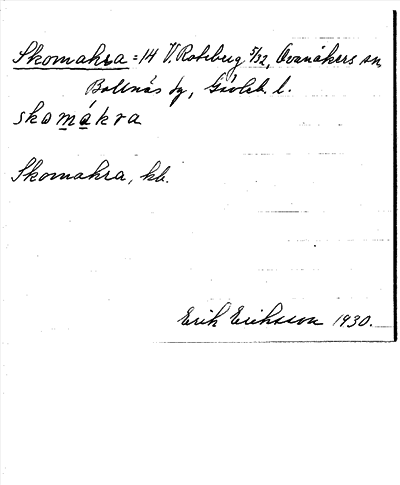 Skomakra = 14 V. Roteberg 5/32, Ovanåkers sn,
Bollnäs tg, Gävleb. l.
skomákra
Skomakra, kb.
Erik Eriksson 1930.